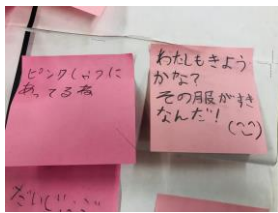 ピンクしゃつに
あってる
わたしもきよう
かな?
その服がすき
なんだ!
(^_^)